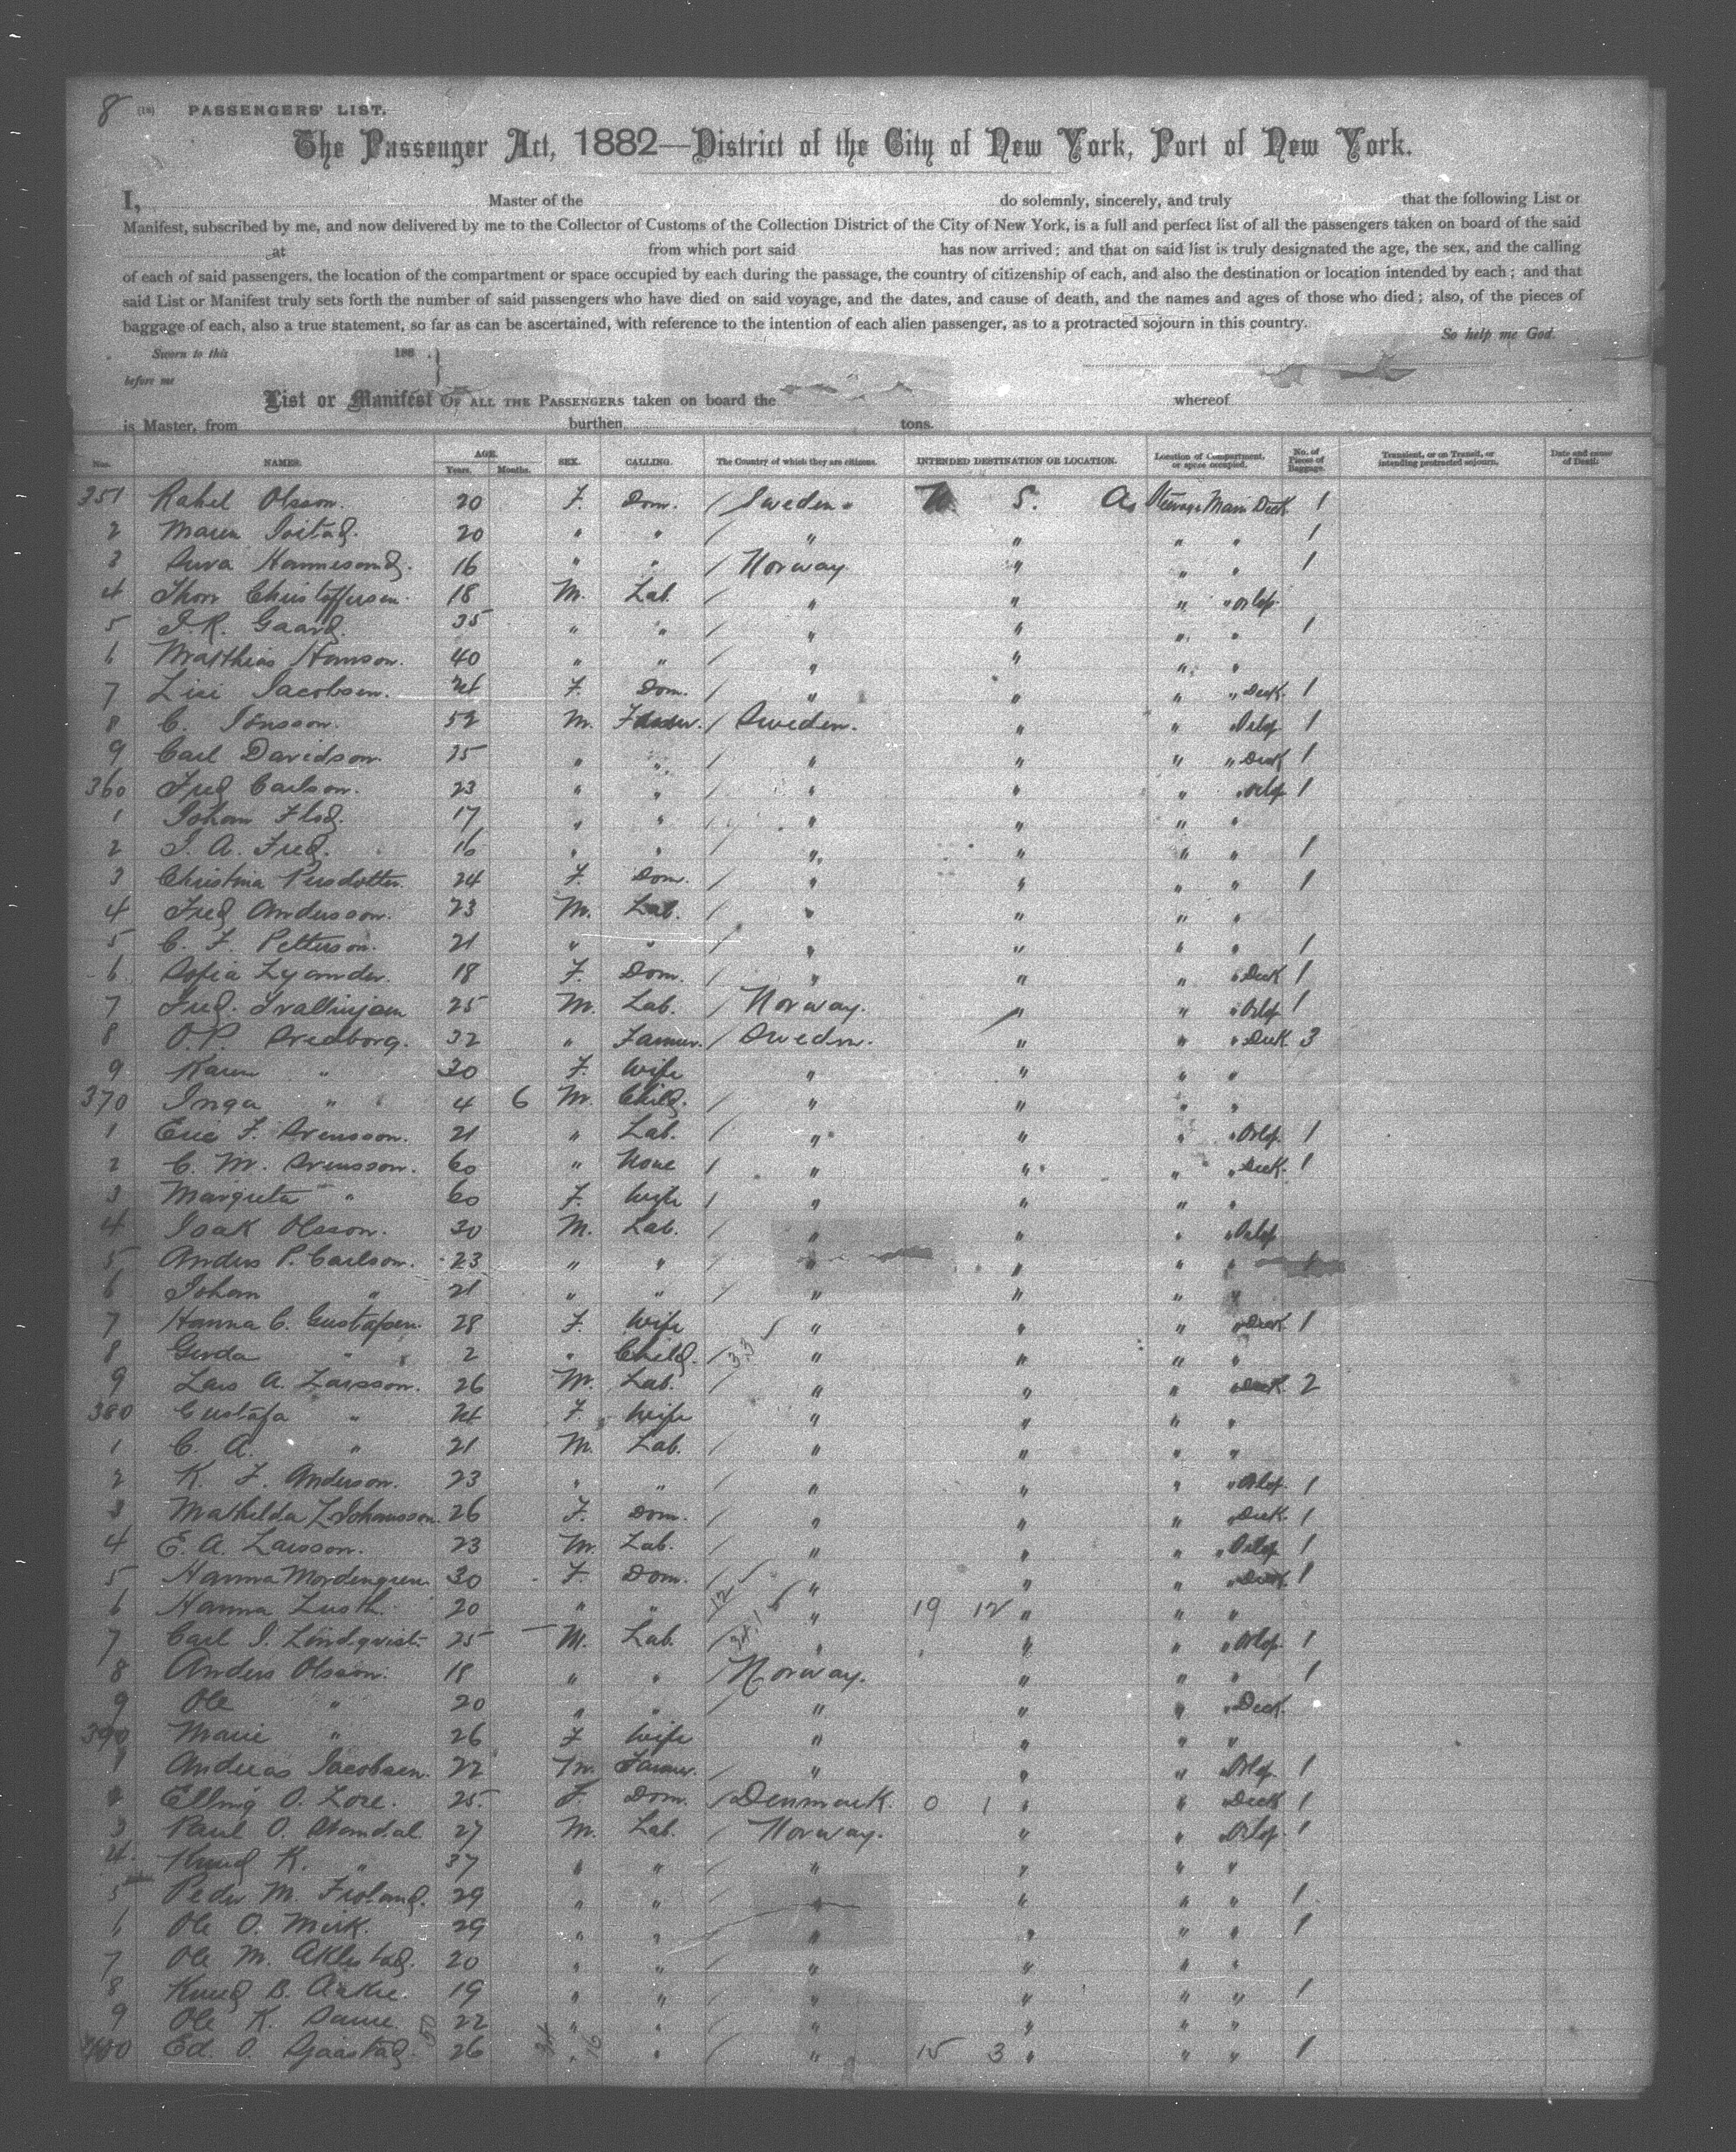 8 (18) PASSENGERS' LIST.
The Passenger Act, 1882—District of the City of New York, Port of New York.
I, Master of the do solemnly, sincerely, and truly that the following List or
Manifest, subscribed by me, and now delivered by me to the Collector of Customs of the Collection District of the City of New York, is a full and perfect list of all the passengers taken on board of the said
at from which port said has now arrived; and that on said list is truly designated the age, the sex, and the calling
of each of said passengers, the location of the compartment or space occupied by each during the passage, the country of citizenship of each, and also the destination or location intended by each; and that
said List or Manifest truly sets forth the number of said passengers who have died on said voyage, and the dates, and cause of death, and the names and ages of those who died; also, of the pieces of
baggage of each, also a true statement, so far as can be ascertained, with reference to the intention of each alien passenger, as to a protracted sojourn in this country.
So help me God.
Sworn to this 188
before me
List or Manifest OF ALL THE PASSENGERS taken on board the whereof
is Master, from burthen tons.
Nos. NAMES. AGE. Years. Months. SEX. CALLING. The Country of which they are citizens. INTENDED DESTINATION OR LOCATION. Location of Compartment, or space occupied. No. of Pieces of Baggage. Transient, or on Transit, or intending protracted sojourn. Date and cause of Death.
351 Rahel Olsson. 20 F. Dom. / Sweden. U. S. A. Steerage Main Deck 1
2 Maren 20 " " / " " " " 1
3 16 " " / Norway " " " 1
4 Thor Christoffersen. 18 M. Lab. / " " " " Orlop.
5 J. R. Gaard. 35 " " / " " " " 1
6 Matthias Hanson. 40 " " / " " " "
7 Lisi Jacobsen. 24 F. Dom. / " " " " Deck. 1
8 C. Jonsson. 52 M. Farmer. / Sweden. " " Orlop 1
9 Carl Davidson. 35 " " / " " " " Deck 1
360 Fred Carlson. 23 " " / " " " " Orlop 1
1 Johan Flod. 17 " " / " " " "
2 J. A. Fred. 16 " " / " " " " 1
3 Christina Persdotter. 24 F. Dom. / " " " " 1
4 Fred Andersson. 23 M. Lab. / " " " "
5 C. F. Petterson. 21 " " / " " " " 1
6 Sofia Lyander. 18 F. Dom. / " " " " Deck 1
7 Fred. 25 M. Lab. / Norway. " " " Orlop 1
8 O. P. Svedborg. 32 " Farmer. / Sweden. " " " Deck. 3
9 Karen " 30 F. Wife " " " "
370 Inga " 4 6 M. Child. / " " " "
1 Eric F. Svensson. 21 " Lab. / " " " " Orlop. 1
2 C. M. Svensson. 60 " None / " " " " Deck. 1
3 Margreta " 60 F. Wife / " " " "
4 Isak Olsson. 30 M. Lab. / " " " " Orlop
5 Anders P. Carlson. 23 " " / " " " " 1
6 Johan " 21 " " / " " " "
7 Hanna C. Gustafson. 28 F. Wife " " " " Deck. 1
8 Gerda " 2 " Child. / 33 " " " "
9 Lars A. Larsson. 26 M. Lab. / " " " " Deck 2
380 Gustafa " 24 F. Wife " " " "
1 C. A. " 21 M. Lab. / " " " "
2 K. F. Anderson. 23 " " / " " " " Orlop. 1
3 Mathilda L. Johansson. 26 F. Dom. / " " " " Deck. 1
4 E. A. Larsson. 23 M. Lab. / " " " " Orlop 1
5 Hanna Nordengren. 30 F. Dom. / " " " " Deck. 1
6 Hanna Lusth. 20 " " / 12 " 19 12 " " "
7 Carl J. Lindqvist. 25 M. Lab. / " " " " Orlop. 1
8 Anders Olsson. 18 " " / Norway. " " " 1
9 Ole " 20 " " / " " " " Deck.
390 Marie " 26 F Wife " " " "
1 Andreas Jacobsen. 22 M. Farmer. / " " " Orlop. 1
2 Elling O. Lore. 25. F. Dom. / Denmark. 0 1 " " Deck 1
3 Paul O. 27 M. Lab. / Norway. " " " Orlop. 1
4 Knud K. " 37 " " / " " " "
5 Peder M. Froland. 29 " " / " " " " 1
6 Ole O. Meik. 29 " " / " " " " 1
7 Ole M. Aklestad. 20 " " / " " " "
8 Knud B. 19 " " / " " " " 1
9 Ole K. 22 " " / " " " "
400 Ed. O. Gjaastad. 50 26 34 " 16 " / " 15 3 " " " 1